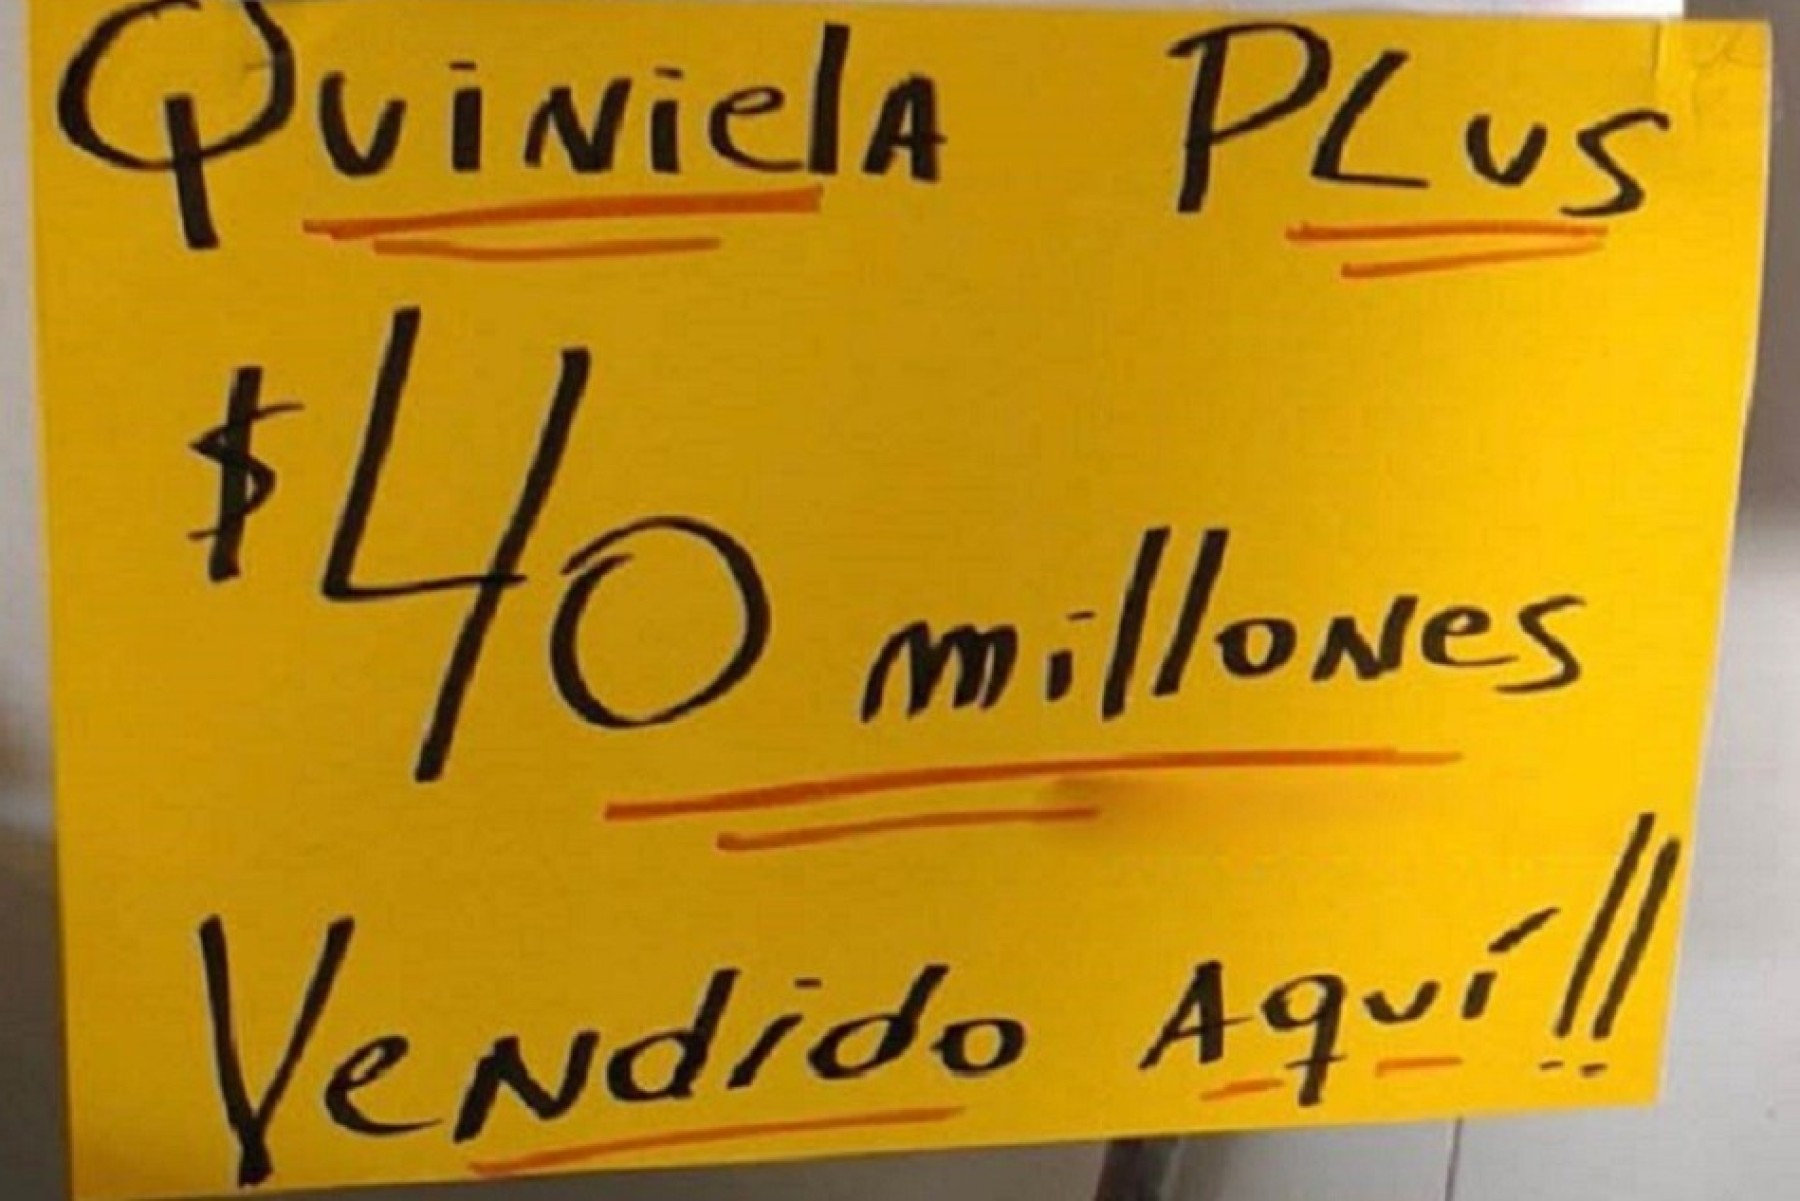 Quiniela Plus
$40 millones
Vendido Aquí!!